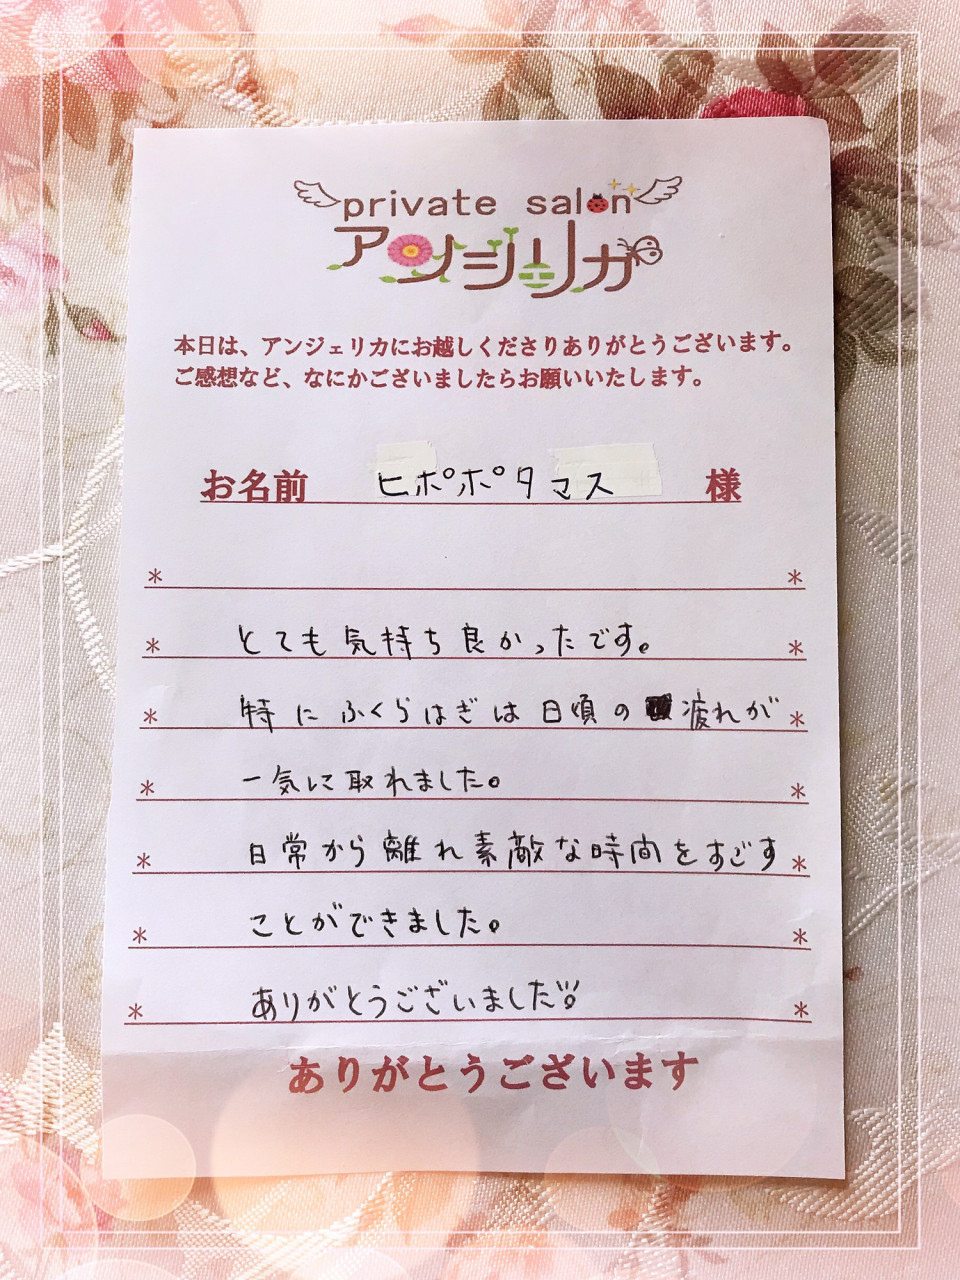 private salon
アンジェリカ
本日は、アンジェリカにお越しくださりありがとうございます。
ご感想など、なにかございましたらお願いいたします。
お名前 ヒポポタマス 様
* *
* とても気持ち良かったです。 *
* 特にふくらはぎは日頃の疲れが *
* 一気に取れました。 *
* 日常から離れ素敵な時間をすごす *
* ことができました。 *
* ありがとうございました *
ありがとうございます